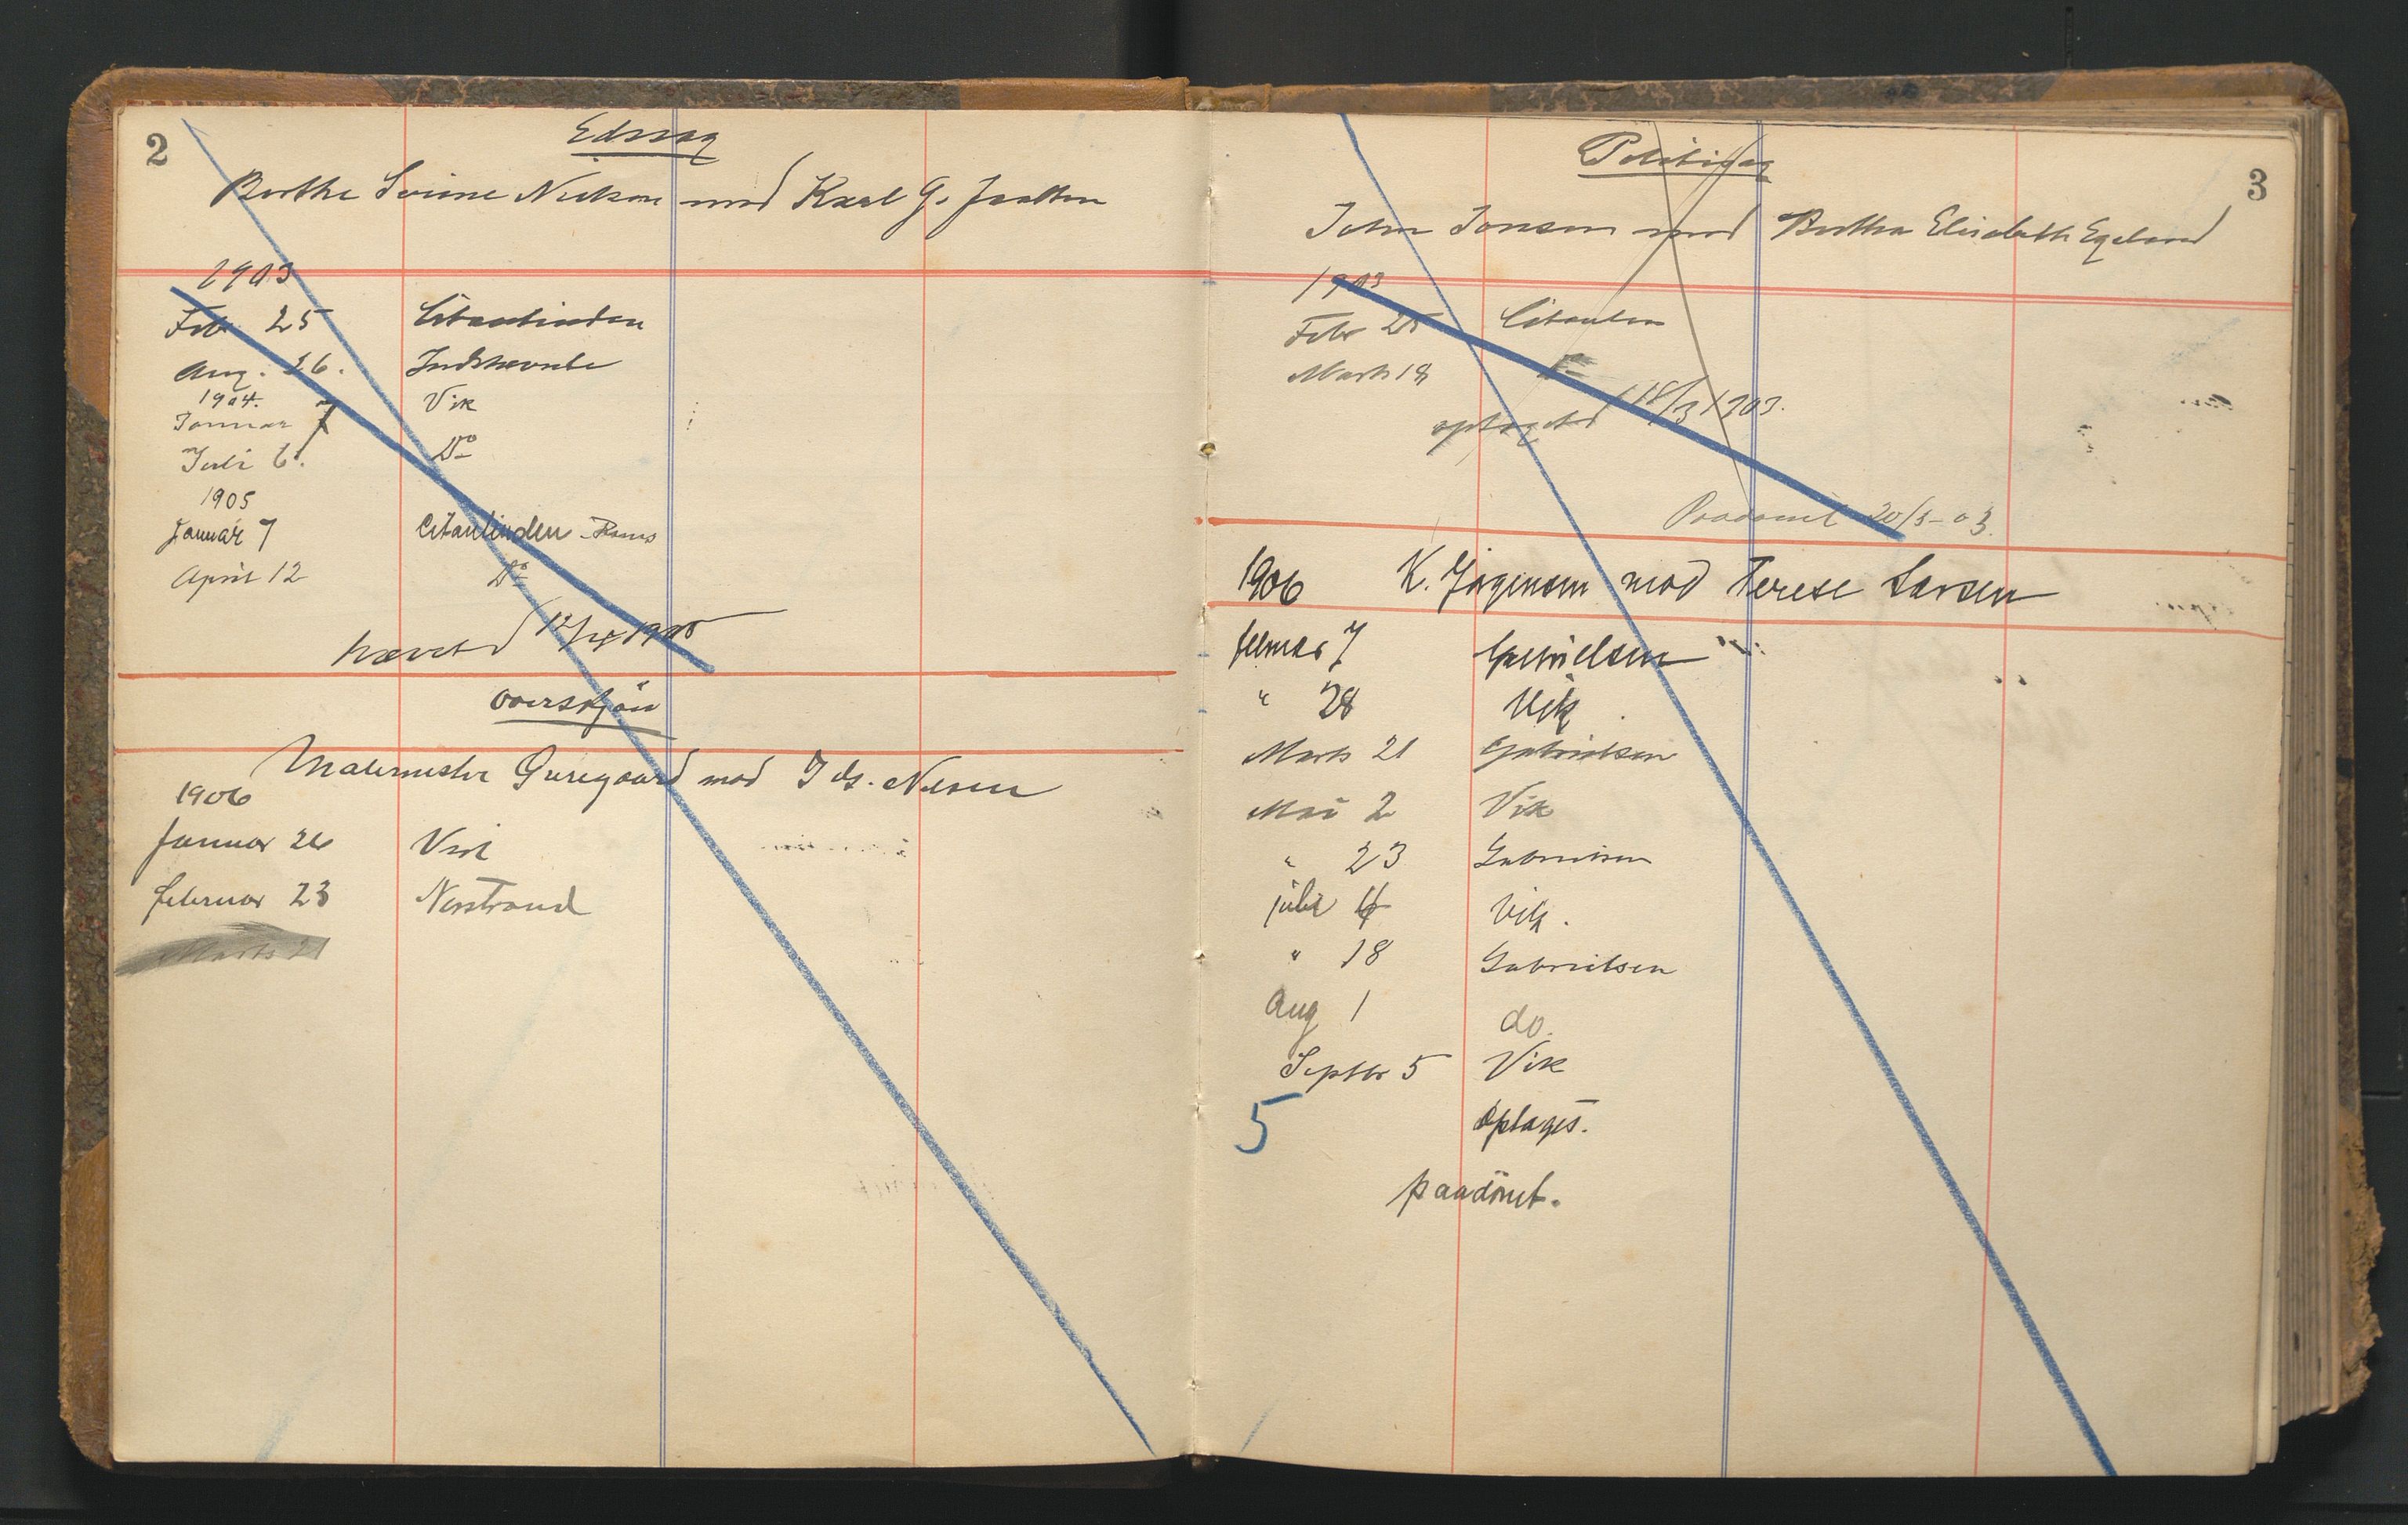 2
Edssag
Berthe Serine Nielsen mod Karl G.
1903
Feb. 25 Citantinden
Aug. 26. Indstevnte
1904.
Januar 7 Vik
Juli 6. Do
1905
Januar 7 Citantinden
April 12 Do
hævet d 12/4 1905
Overskjön
Malermester mod
1906
Januar 26 Vik
februar 23 Nerstrand
Marts 21
3
Politisag
John Jonsen mod Bertha Elisabeth Egeland
1903
Febr 25 Citanten
Marts 18
optaget d 18/3 1903.
Paadömt 20/3-03.
1906 K. Jörgensen mod Terese Larsen
februar 7 Gabrielsen
" 28 Vik
Marts 21 Gabrielsen
Mai 2 Vik
" 23 Gabrielsen
juli 4 Vik.
" 18 Gabrielsen
Aug 1 do.
Septbr 5 Vik
5 Optages.
paadömt.